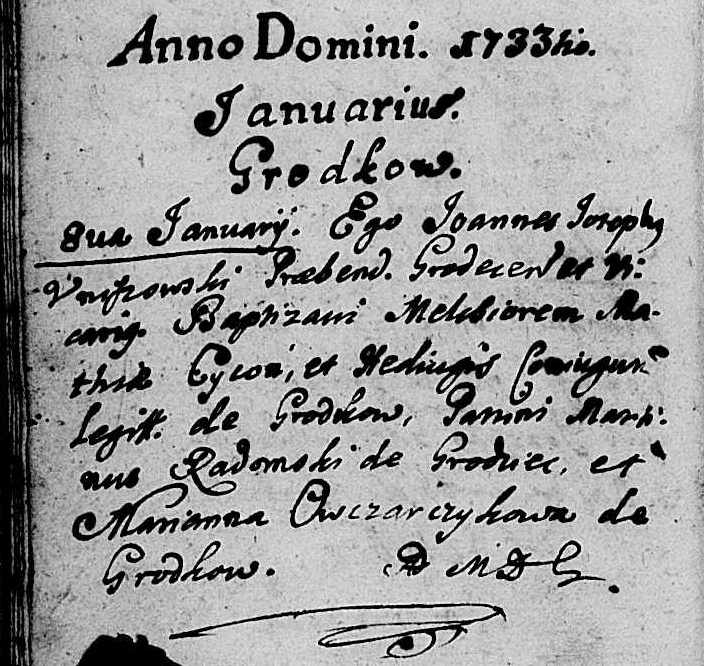 Anno Domini. 1733tio.
Januarius.
Grodkow.
8va Januarij. Ego Joannes Josephus
Præbend. Grodecen et Vi:
carig. Baptizavi Melchiorem Ma-
thiæ Cycoń, et Hedwigis Coniugum
legitt. de Grodkow, Patrini Marti:
nus Radomski de Grodziec, et
Marianna Owczarczykowa de
Grodkow. AD M D G.